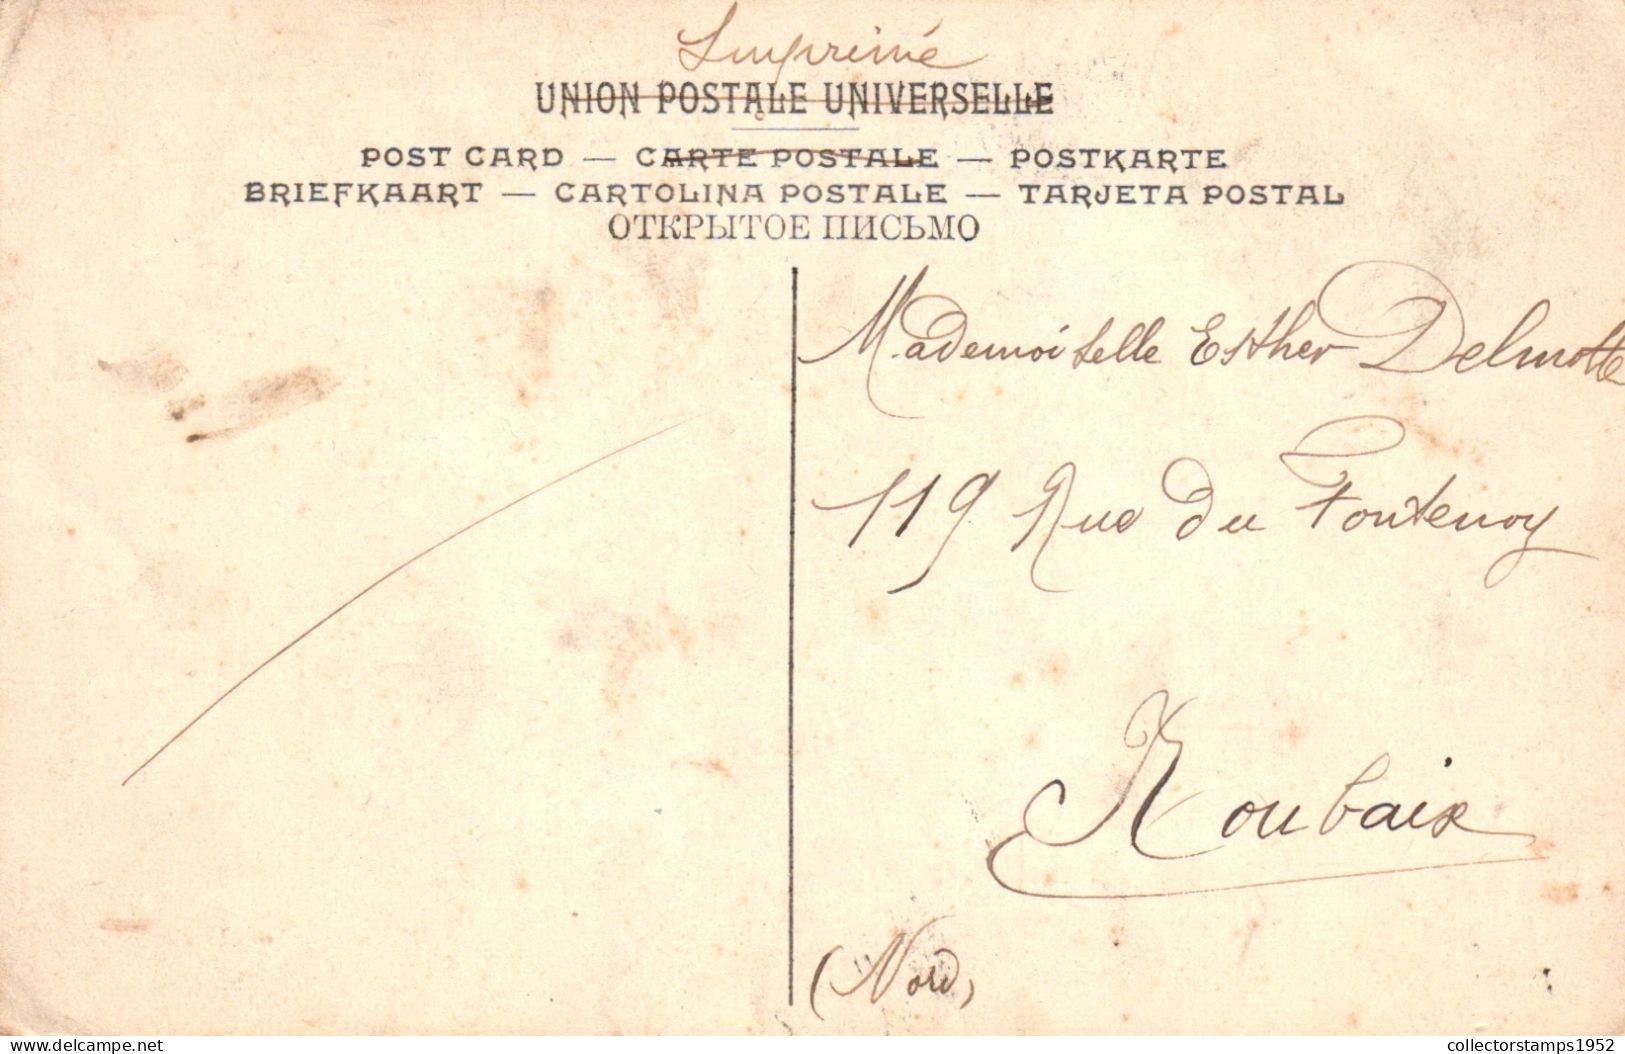 Imprimé
UNION POSTALE UNIVERSELLE
POST CARD — CARTE POSTALE — POSTKARTE
BRIEFKAART — CARTOLINA POSTALE — TARJETA POSTAL
ОТКРЫТОЕ ПИСЬМО
Mademoiselle Esther Delmotte
119 Rue du Fontenoy
Roubaix
(Nord)
www.delcampe.net
collectorstamps1952